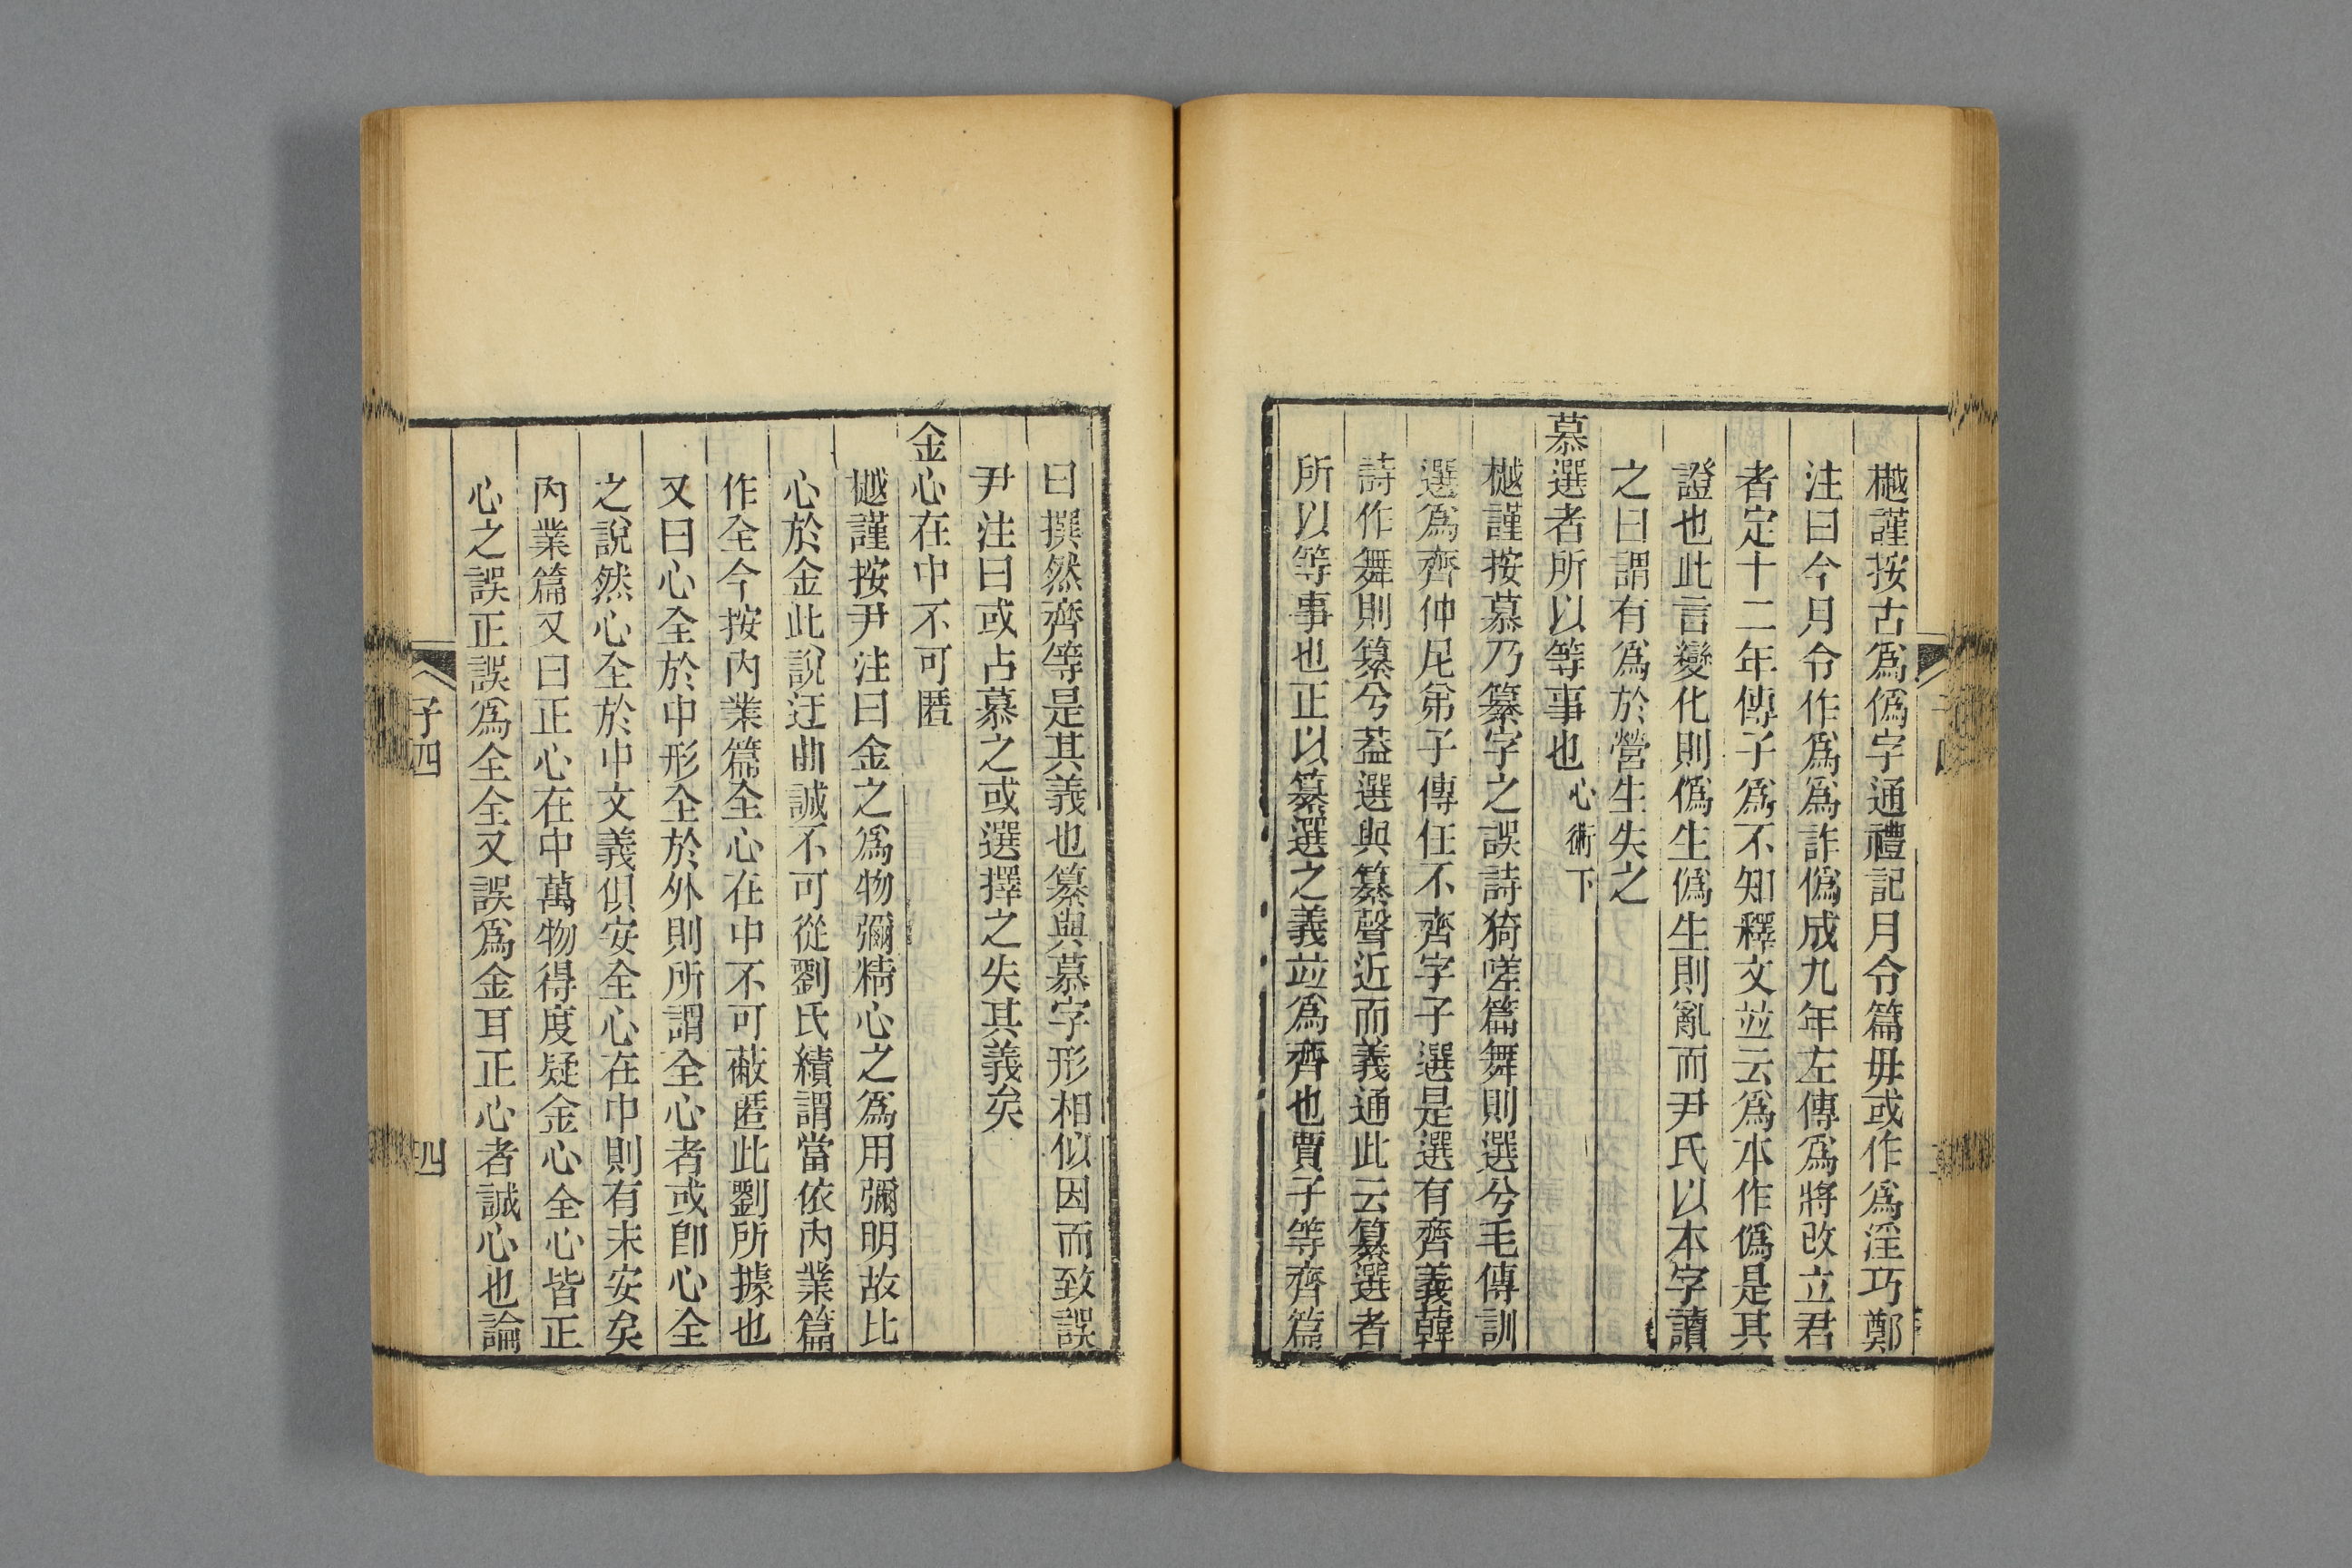 樾謹按古爲僞字通禮記月令篇毋或作爲淫巧鄭
注曰今月令作爲爲詐僞成九年左傳爲將改立君
者定十二年傳子爲不知釋文並云爲本作僞是其
證也此言變化則僞生僞生則亂而尹氏以本字讀
之曰謂有爲於營生失之
慕選者所以等事也心術下
樾謹按慕乃纂字之誤詩猗嗟篇舞則選兮毛傳訓
選爲齊仲尼弟子傳任不齊字子選是選有齊義韓
詩作舞則纂兮葢選與纂聲近而義通此云纂選者
所以等事也正以纂選之義並爲齊也賈子等齊篇
曰撰然齊等是其義也纂與慕字形相似因而致誤
尹注曰或占慕之或選擇之失其義矣
金心在中不可匿
樾謹按尹注曰金之爲物彌精心之爲用彌明故比
心於金此說迂曲誠不可從劉氏績謂當依內業篇
作全今按內業篇全心在中不可蔽匿此劉所據也
又曰心全於中形全於外則所謂全心者或卽心全
之說然心全於中文義俱安全心在中則有未安矣
內業篇又曰正心在中萬物得度疑金心全心皆正
心之誤正誤爲全全又誤爲金耳正心者誠心也論
子四
四